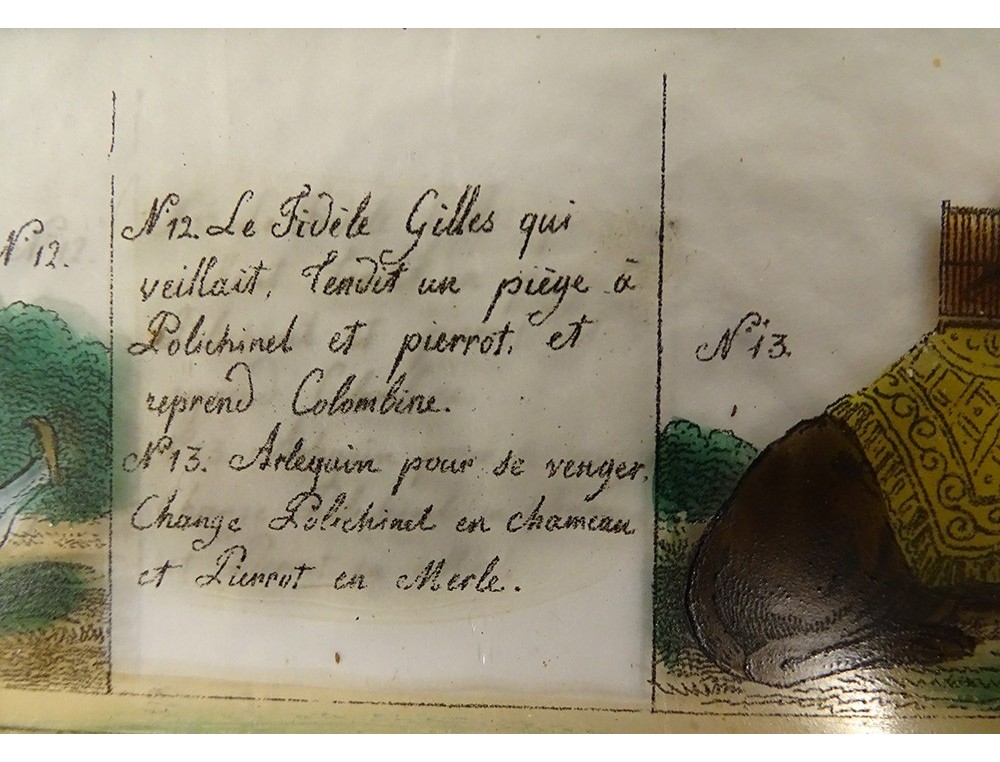 N° 12.
N° 12. Le Fidèle Gilles qui
veillait, Tendit un piège à
Polichinel et pierrot, et
reprend Colombine.
N° 13. Arlequin pour se venger,
Change Polichinel en chameau
et Pierrot en Merle.
N° 13.